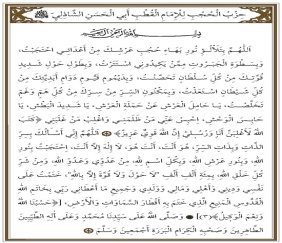 حِزْبُ الْحُجُبِ لِلْإِمَامِ الْقُطْبِ أَبِي الْحَسَنِ الشَّاذِلِيّ
اَللّٰهُمَّ بِتَلَأْلُؤِ نُورِ بَهَاءِ حُجُبِ عَرْشِكَ مِنْ أَعْدَائِي احْتَجَبْتُ،
وَبِسَطْوَةِ الْجَبَرُوتِ مِمَّنْ يَكِيدُونِي اسْتَتَرْتُ، وَبِطَوْلِ حَوْلِ شَدِيدِ
قُوَّتِكَ مِنْ كُلِّ سُلْطَانٍ تَحَصَّنْتُ، وَبِدَيْمُومِ قَيُّومِ دَوَامِ أَبَدِيَّتِكَ مِنْ
كُلِّ شَيْطَانٍ اسْتَعَذْتُ، وَبِمَكْنُونِ السِّرِّ مِنْ سِرِّكَ مِنْ كُلِّ هَمٍّ وَغَمٍّ
تَخَلَّصْتُ، يَا حَامِلَ الْعَرْشِ عَنْ حَمَلَةِ الْعَرْشِ، يَا شَدِيدَ الْبَطْشِ، يَا
حَابِسَ الْوَحْشِ، اِحْبِسْ عَنِّي مَنْ ظَلَمَنِي وَاغْلِبْ مَنْ غَلَبَنِي ﴿كَتَبَ
اللّٰهُ لَأَغْلِبَنَّ أَنَا وَرُسُلِي إِنَّ اللّٰهَ قَوِيٌّ عَزِيزٌ﴾ اَللّٰهُمَّ إِنِّي أَسْأَلُكَ بِسِرِّ
الذَّاتِ وَبِذَاتِ السِّرِّ، هُوَ أَنْتَ، أَنْتَ هُوَ، لَا إِلٰهَ إِلَّا أَنْتَ، احْتَجَبْتُ بِنُورِ
اللّٰهِ، وَبِنُورِ عَرْشِ اللّٰهِ، وَبِكُلِّ اسْمٍ لِلّٰهِ، مِنْ عَدُوِّي وَعَدُوِّ اللّٰهِ، وَمِنْ شَرِّ
كُلِّ خَلْقِ اللّٰهِ، بِمِئَةِ أَلْفِ أَلْفِ "لَا حَوْلَ وَلَا قُوَّةَ إِلَّا بِاللّٰهِ"، خَتَمْتُ عَلَى
نَفْسِي وَدِينِي وَأَهْلِي وَمَالِي وَوَلَدِي وَجَمِيعِ مَا أَعْطَانِي رَبِّي بِخَاتَمِ اللّٰهِ
الْقُدُّوسِ الْمَنِيعِ الَّذِي خَتَمَ بِهِ أَقْطَارَ السَّمَاوَاتِ وَالْأَرْضِ، [حَسْبُنَا اللّٰهُ
وَنِعْمَ الْوَكِيلُ](٣) وَصَلَّى اللّٰهُ عَلَى سَيِّدِنَا مُحَمَّدٍ وَعَلَى آلِهِ الطَّيِّبِينَ
الطَّاهِرِينَ وَصَحْبِهِ الْكِرَامِ الْبَرَرَةِ أَجْمَعِينَ وَسَلَّمَ